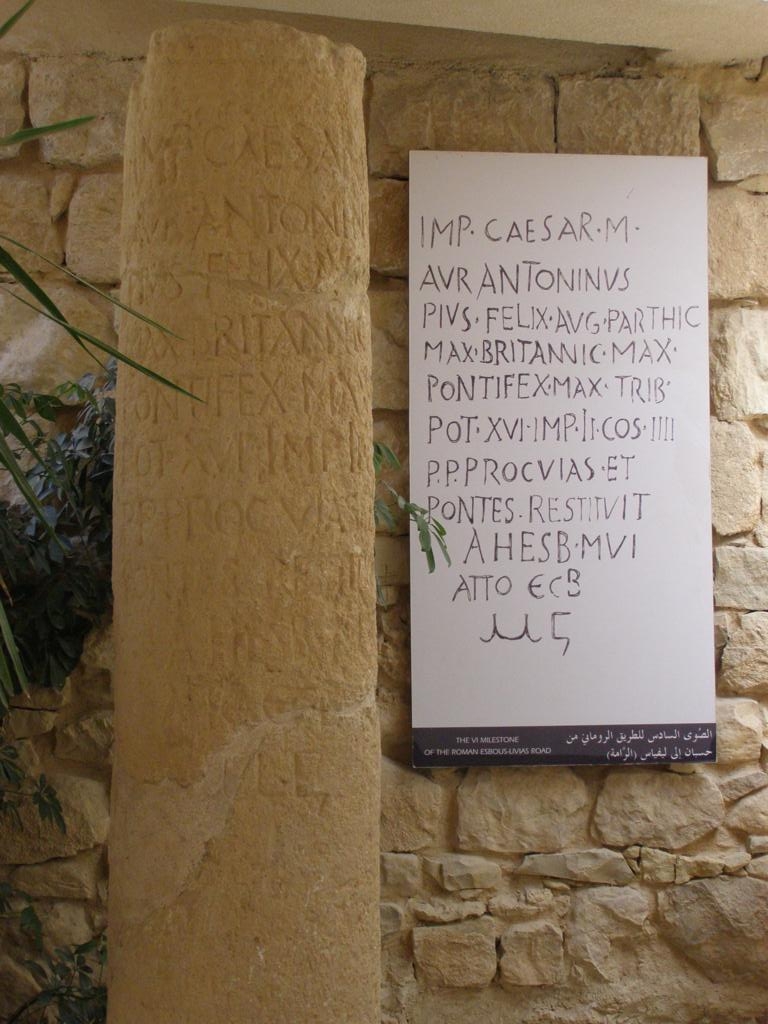 MP CAESA
AVR ANTONIN
FELIX AV
MAX BRITANNI
PONTIFEX MA
POT XVI IMP II
P P PROC VIAS
IMP · CAESAR · M ·
AVR ANTONINVS
PIVS · FELIX · AVG · PARTHIC
MAX · BRITANNIC · MAX ·
PONTIFEX · MAX · TRIB ·
POT · XVI · IMP · II · COS · IIII
P.P. PROC VIAS · ET
PONTES · RESTITVIT
A HESB · M VI
ΑΠΟ ЄCB
Μ Ϛ
THE VI MILESTONE
OF THE ROMAN ESBOUS-LIVIAS ROAD
الصّوى السادس للطريق الروماني من
حسبان إلى ليفياس (الرّامة)